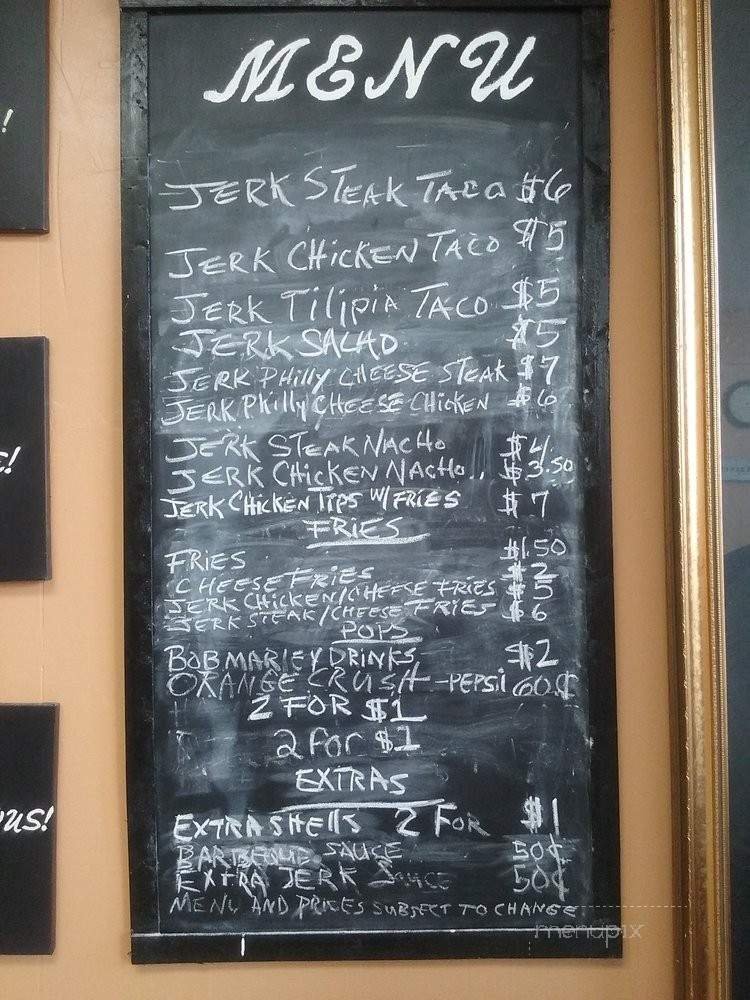 !
E!
OUS!
MENU
JERK STEAK TACO $6
JERK CHICKEN TACO $5
JERK Tilipia TACO $5
JERK SALAD $5
JERK PHilly CHEESE STEAK $7
JERK PHilly CHEESE CHICKEN $6
JERK STEAK NACHO $4
JERK CHICKEN NACHO.. $3.50
JERK CHICKEN TIPS W/ FRIES $7
FRIES
FRIES $1.50
CHEESE FRIES $2
JERK CHICKEN/CHEESE FRIES $5
JERK STEAK/CHEESE FRIES $6
POPS
BOB MARLEY DRINKS $2
ORANGE CRUSH -PEPSI 60¢
2 FOR $1
2 for $1
EXTRAS
EXTRA SHEllS 2 FOR $1
BARBEQUE SAUCE 50¢
EXTRA JERK SAUCE 50¢
MENU AND PRICES SUBJECT TO CHANGE
menupix